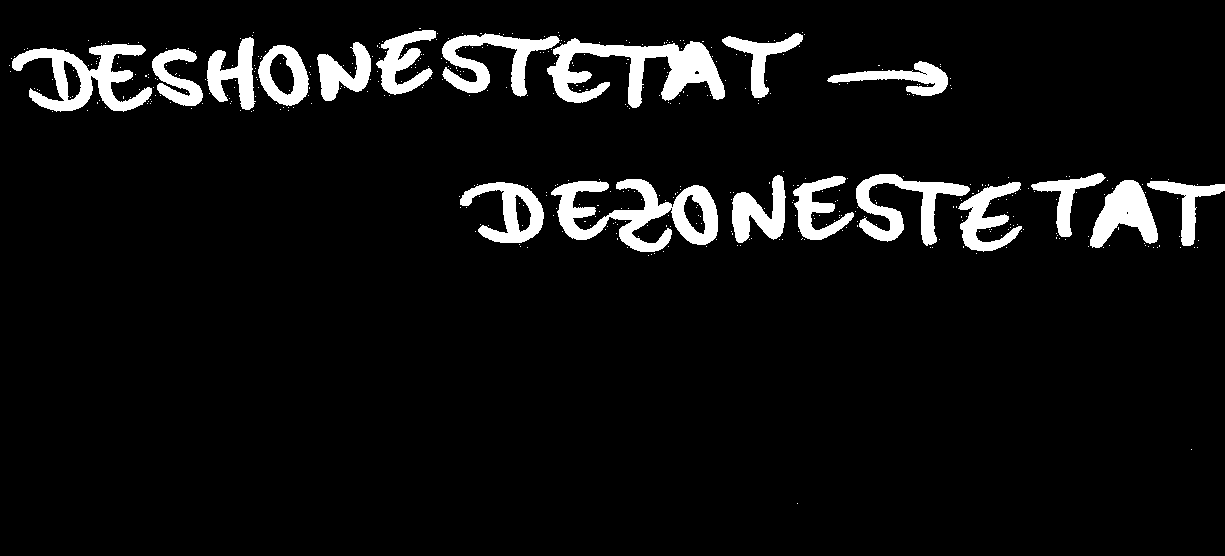 DESHONESTETAT →
DEZONESTETAT